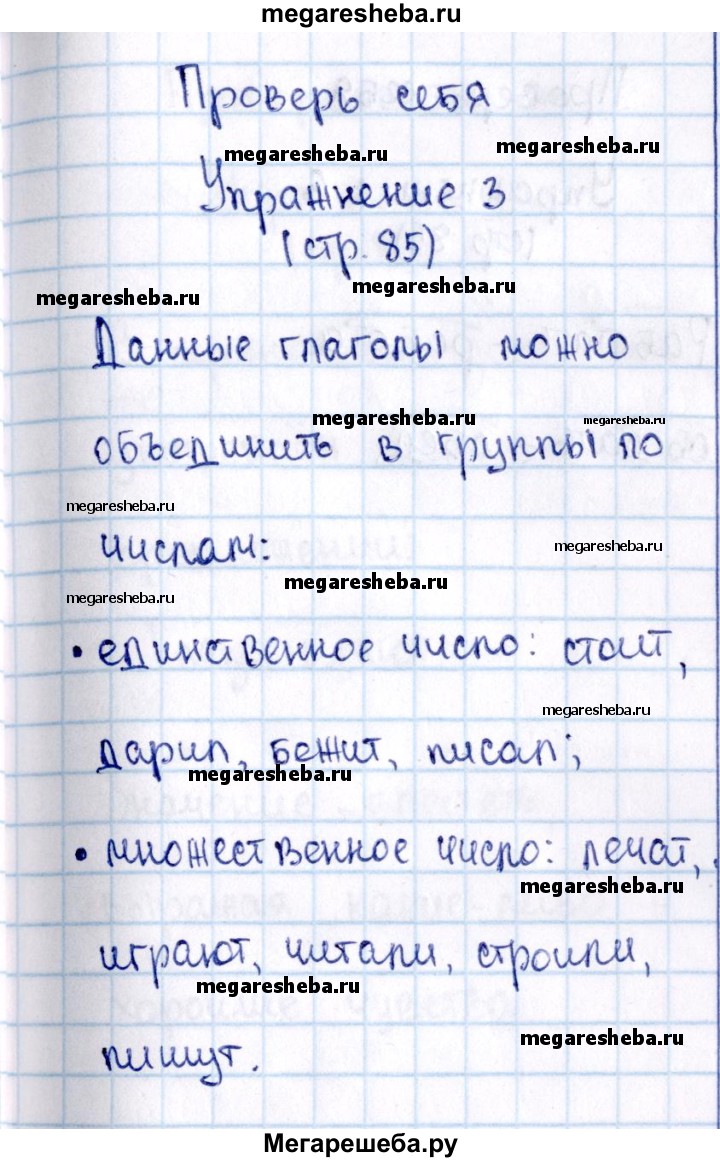 megaresheba.ru
Проверь себя
megaresheba.ru
megaresheba.ru
Упражнение 3
(стр. 85)
megaresheba.ru
megaresheba.ru
Данные глаголы можно
megaresheba.ru
megaresheba.ru
объединить в группы по
megaresheba.ru
числам:
megaresheba.ru
megaresheba.ru
megaresheba.ru
• единственное число: стоит,
megaresheba.ru
дарил, бежит, писал;
megaresheba.ru
• множественное число: лечат,
megaresheba.ru
играют, читали, строили,
megaresheba.ru
megaresheba.ru
пишут.
Мегарешеба.ру